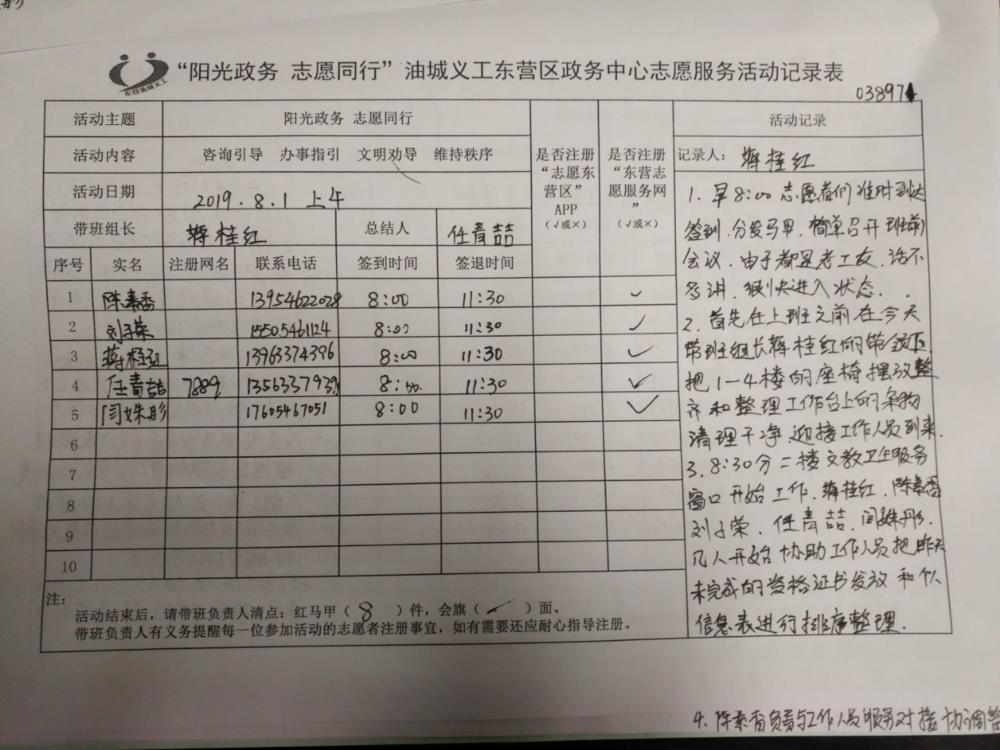 东营油城义工
“阳光政务 志愿同行”油城义工东营区政务中心志愿服务活动记录表
038971
活动主题 阳光政务 志愿同行
活动内容 咨询引导 办事指引 文明劝导 维持秩序
活动日期 2019.8.1 上午
带班组长 蒋桂红 总结人 任青喆
序号 实名 注册网名 联系电话 签到时间 签退时间
是否注册“志愿东营区”APP（√或×）
是否注册“东营志愿服务网”（√或×）
1 陈素香 13954622028 8:00 11:30 ✓
2 刘子荣 15505461124 8:00 11:30 ✓
3 蒋桂红 13963374396 8:00 11:30 ✓
4 任青喆 7889 1356337939 8:00 11:30 ✓
5 闫姝彤 17605467051 8:00 11:30 ✓
6
7
8
9
10
注：
活动结束后，请带班负责人清点：红马甲（8）件，会旗（✓）面。
带班负责人有义务提醒每一位参加活动的志愿者注册事宜，如有需要还应耐心指导注册。
活动记录
记录人：蒋桂红
1. 早8:00志愿者们准时到达
签到.分发马甲.简单召开班前
会议.由于都是老工友.话不
多讲.很快进入状态.
2.首先在上班之前.在今天
带班组长蒋桂红的带领下
把1-4楼的座椅摆放整
齐和整理工作台上的杂物
清理干净.迎接工作人员到来.
3.8:30分二楼文教卫生服务
窗口开始工作.蒋桂红.陈素香
刘子荣.任青喆.闫姝彤.
几人开始协助工作人员把昨天
未完成的资格证书发放和个人
信息表进行排序整理.
4.陈素香负责与工作人员服务对接协调